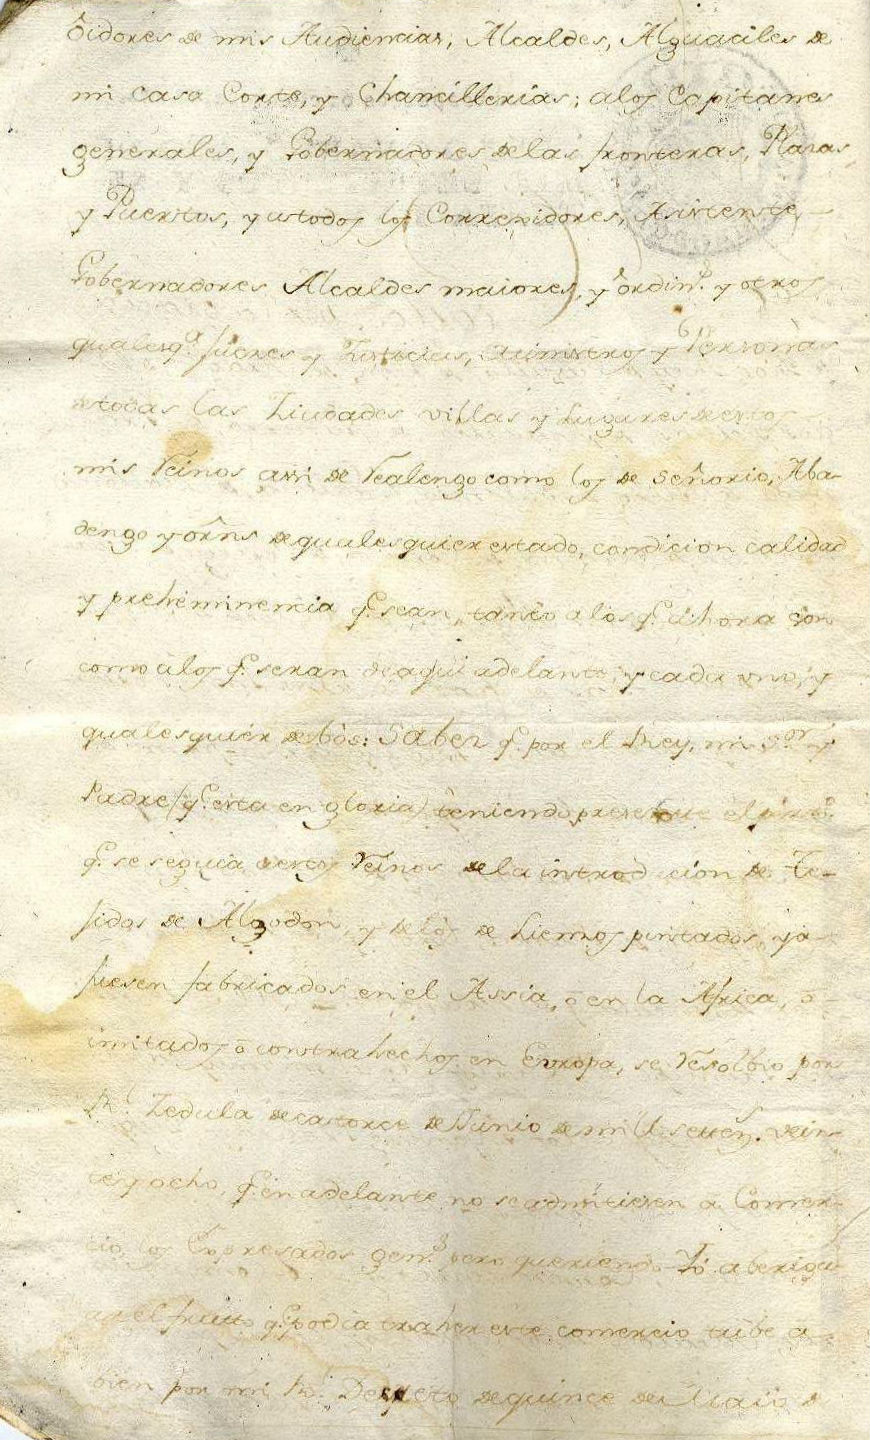 Oidores de mis Audiencias, Alcaldes, Alguaciles de
mi casa Corte, y Chancillerias; a los Capitanes
generales, y Gobernadores de las fronteras, Plazas,
y Puertos, y a todos los Corregidores, Asistente,
Gobernadores Alcaldes maiores, y ordin.s y otros
qualesq.a Jueces y Justicias, Ministros y Personas
de todas las Ziudades villas y Lugares de estos
mis Reinos asi de Realengo como los de Señorio, Aba-
dengo y ōrns de qualesquier estado, condicion calidad
y preheminencia q.e sean, tanto a los q.e ahora son
como a los q.e seran de aqui adelante, y cada uno, y
qualesquier de bos: Sabed q.e por el Rey, mi S.or y
Padre (q.e esta en gloria) teniendo presente el
q.e se seguia a estos Reinos de la introduccion de Te-
jidos de Algodon, y de los de Lienzos pintados, ya
fuesen fabricados en el Assia, ō en la Africa, o
imitados ō contrahechos en Europa, se Resolbio por
R.l Zedula de catorce de Junio de mil settez.s vein-
te y ocho, q.e en adelante no se admitiesen a Comer-
cio los Expresados gen.s pero queriendo Yo aberigu-
ar el frutto q.e podia traher este comercio tube a
bien por mi R.l Decreto de quince de Maio d